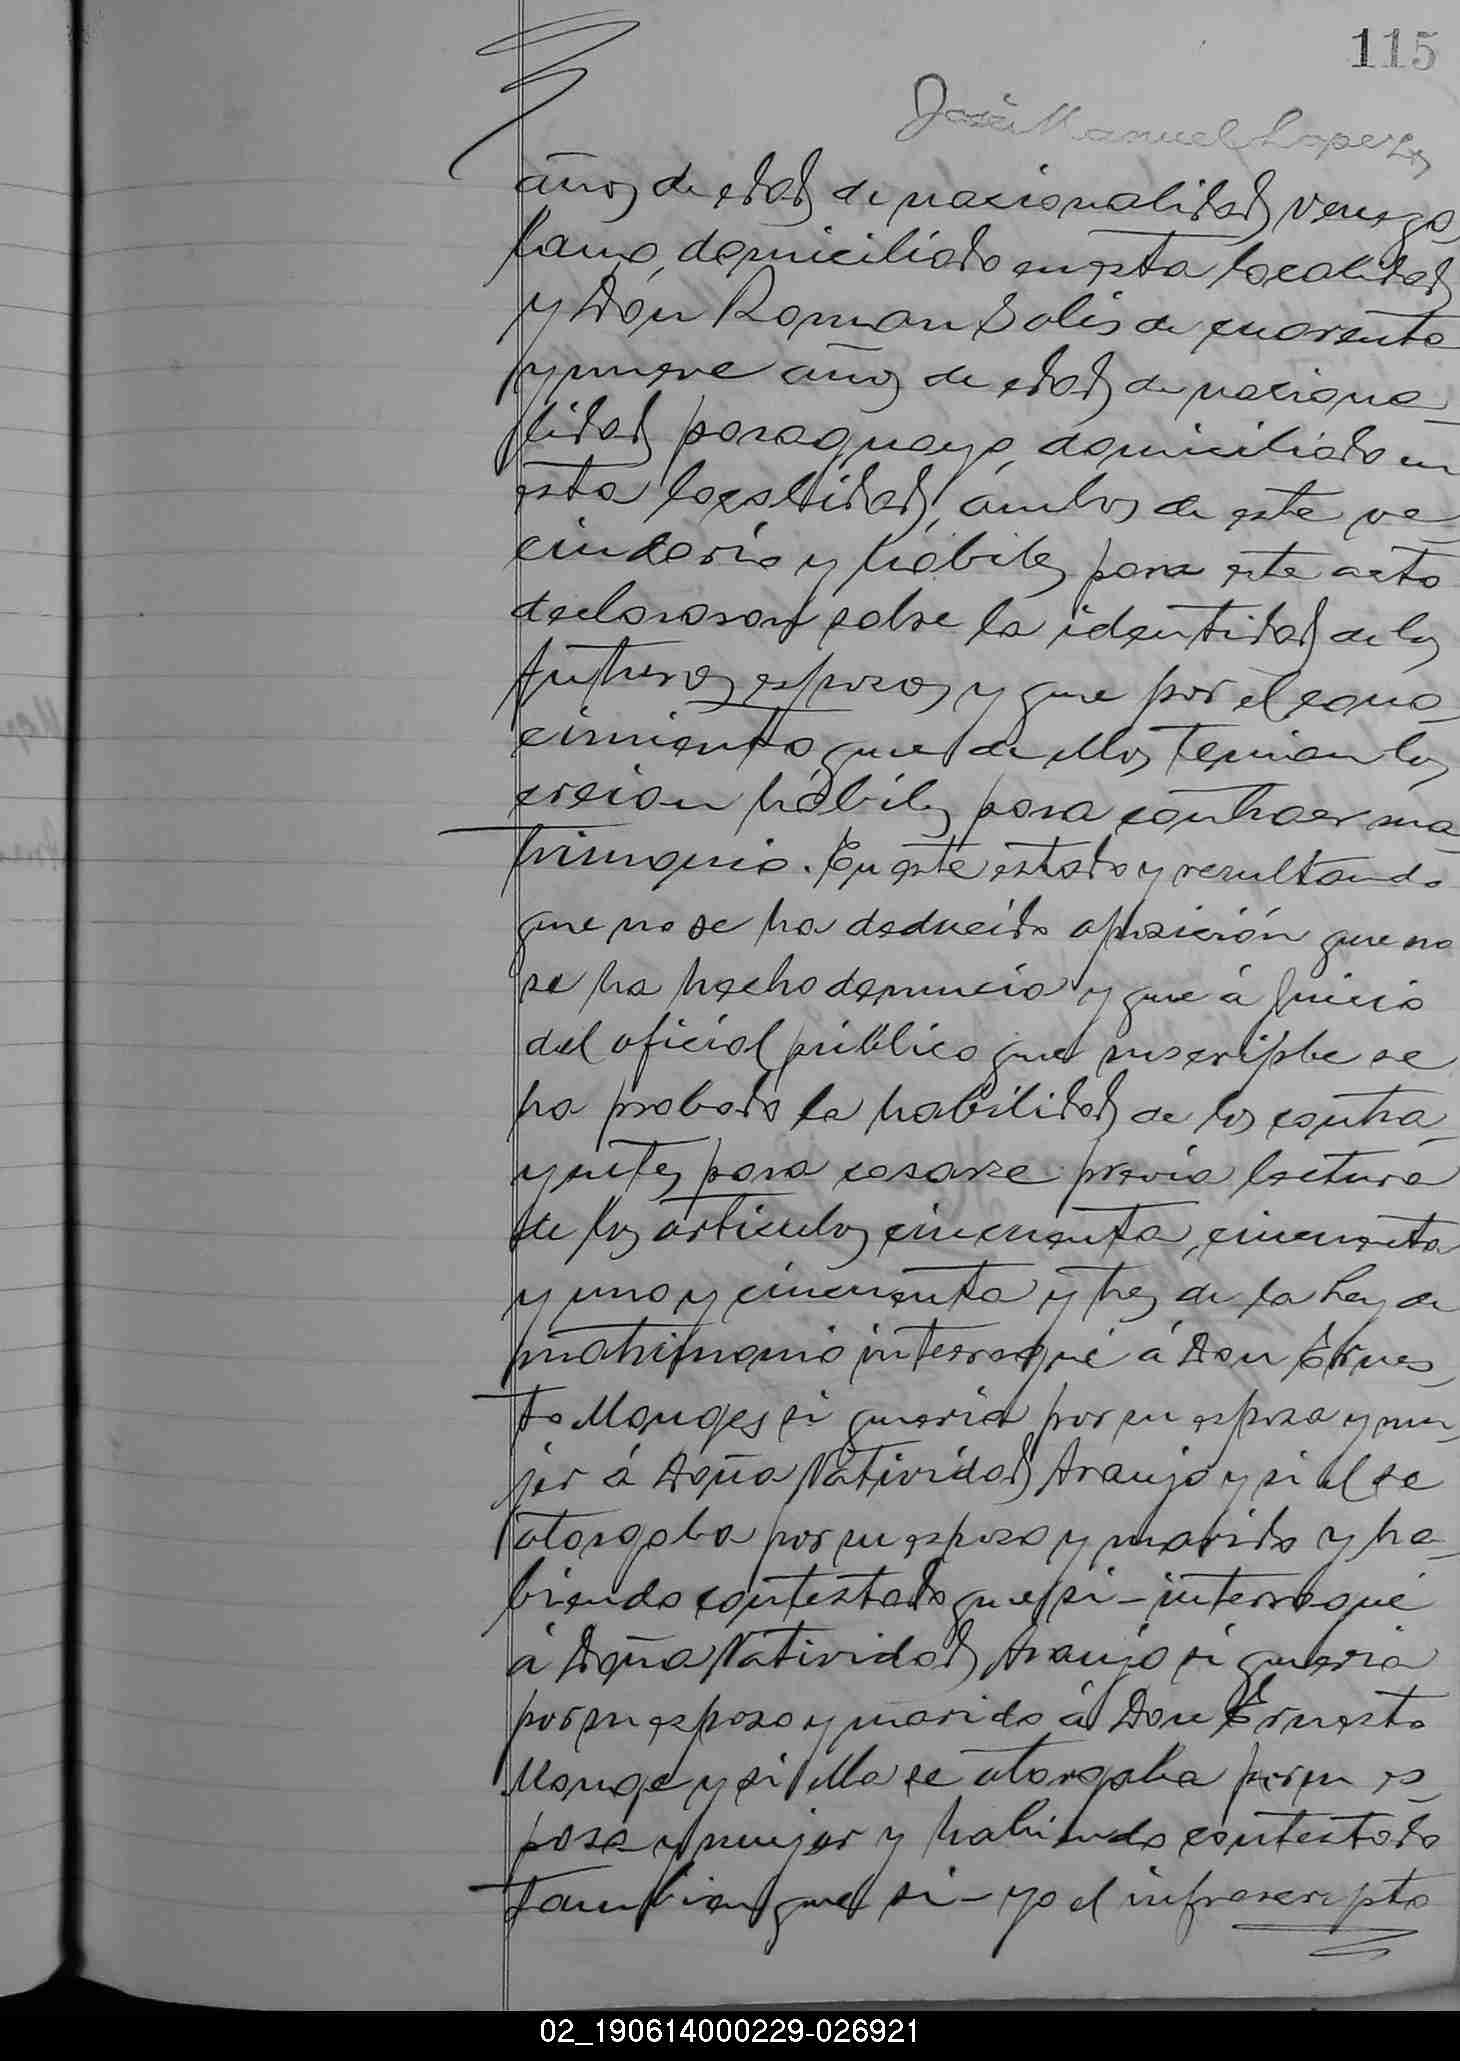 115
José Manuel Lopez
años de edad de nacionalidad venezo
lano, domiciliado en esta localidad
y Don Roman Solis de cuarenta
y nueve años de edad de naciona
lidad paraguayo, domiciliado en
esta localidad, ámbos de este ve
cindario y hábiles para este acto
declararon sobre la identidad de los
futuros esposos y que por el cono
cimiento que de ellos tenian los
creian hábiles para contraer ma
trimonio. En este estado y resultando
que no se ha deducido oposición que no
se ha hecho denuncia y que á juicio
del oficial público que suscripbe se
ha probado la habilidad de los contra
yentes para casarse previa lectura
de los articulos cincuenta, cincuenta
y uno y cincuenta y tres de la ley de
matrimonio interrogué á Don Ernes
to Monges si queria por su esposa y mu
jer á Doña Natividad Araujo y si el se
otorgaba por su esposo y marido y ha
biendo contestado que si - interrogué
á Doña Natividad Araujo si queria
por su esposo y marido á Don Ernesto
Monge y si ella se otorgaba por su es
posa y mujer y habiendo contestado
tambien que si - yo el infrascripto
02_190614000229-026921